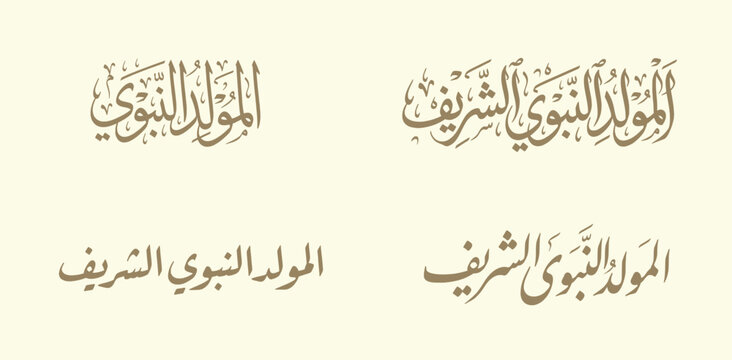 اَلْمُوْلِدُ ٱلنَّبْوَيْ ٱلشَّرِيْف
المُوْلِدُ النَّبْوَيْ
المَولدُ النَّبَوَى الشريف
المولد النبوي الشريف